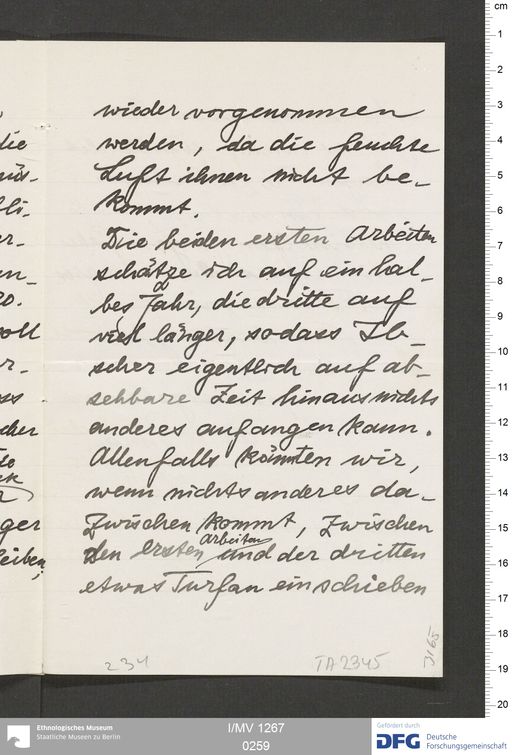 wieder vorgenommen
werden, da die feuchte
Luft ihnen nicht be-
kommt.
Die beiden ersten Arbeiten
schätze ich auf ein hal-
bes Jahr, die dritte auf
viel länger, sodass Ib-
scher eigentlich auf ab-
sehbare Zeit hinaus nichts
anderes anfangen kann.
Allenfalls könnten wir,
wenn nichts anderes da-
zwischen kommt, zwischen
den ersten Arbeiten und der dritten
etwas Turfan einschieben
234
TA 2345
die
li-
er-
20.
soll
r-
ss
cher
ger
leiben,
cm
1
2
3
4
5
6
7
8
9
10
11
12
13
14
15
16
17
18
19
20
Ethnologisches Museum
Staatliche Museen zu Berlin
I/MV 1267
0259
Gefördert durch
DFG Deutsche
Forschungsgemeinschaft